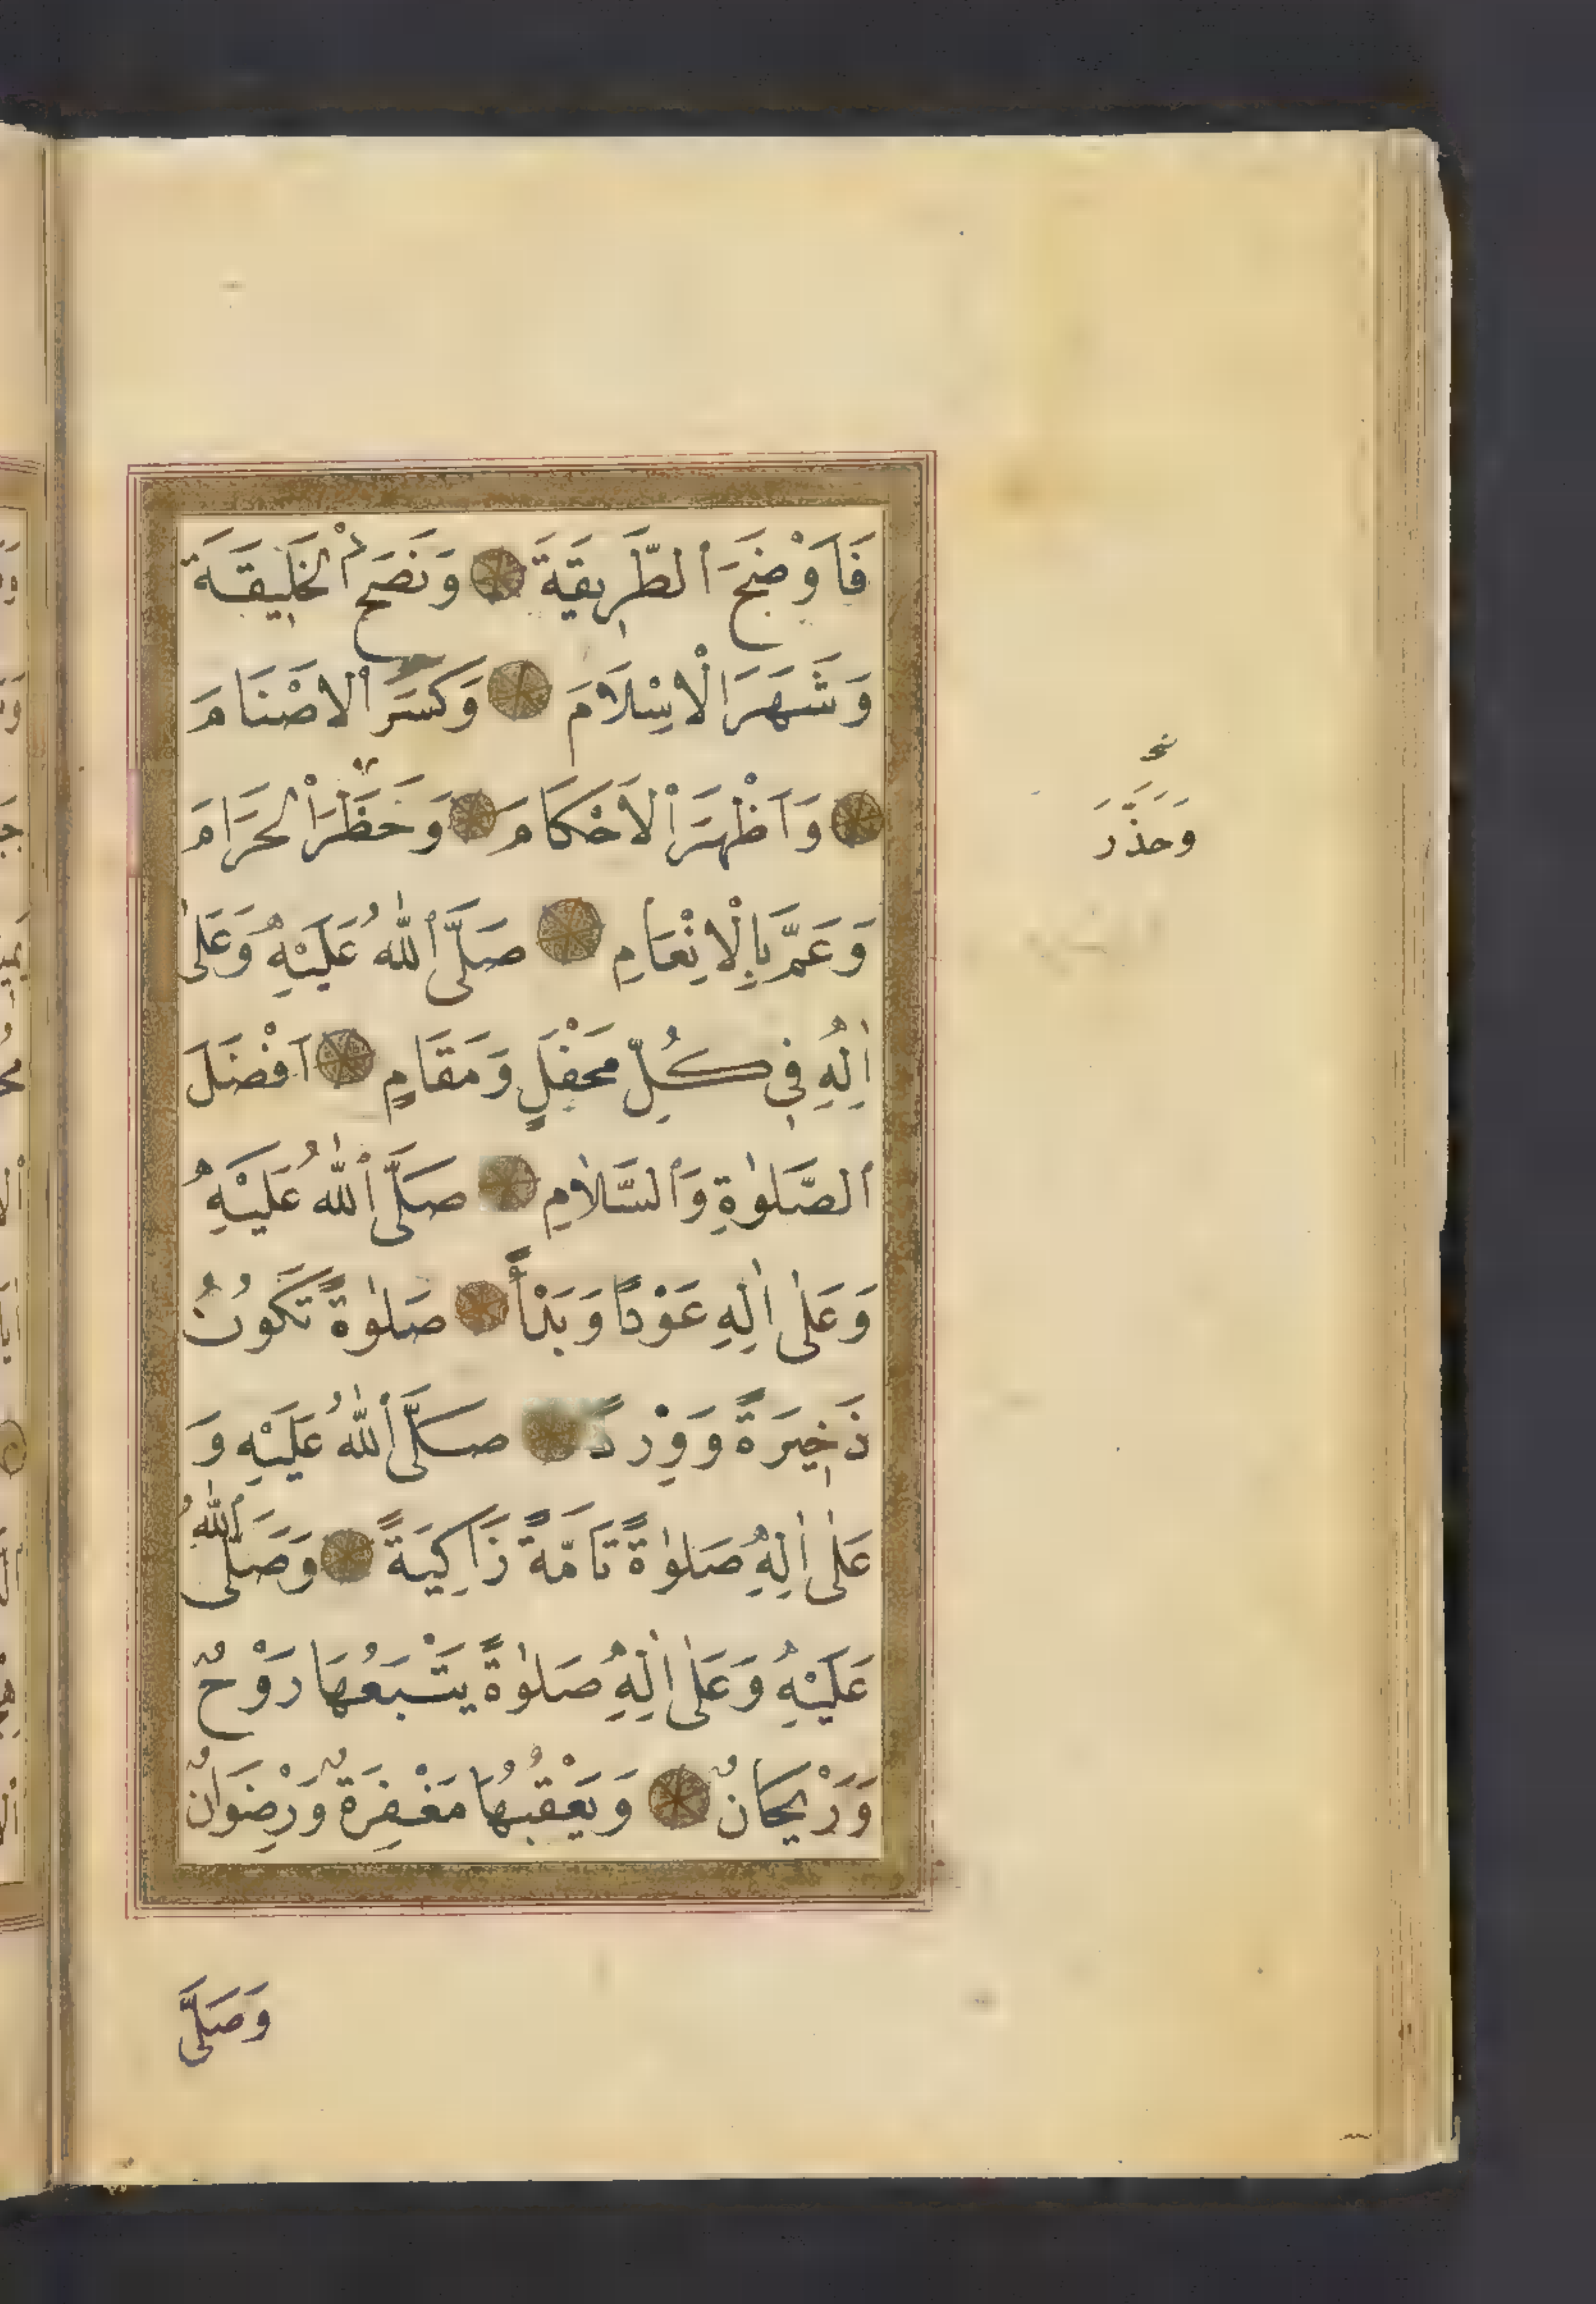 فَاَوْضَحَ ٱلطَّرِيقَةَ وَنَصَحَ ٱلْخَلِيقَةَ
وَشَهَرَ الْاِسْلَامَ وَكَسَرَ ٱلاَصْنَامَ
وَاَظْهَرَ ٱلْاَحْكَامَ وَحَظَرَ اْلحَرَامَ
وَعَمَّ بِالْاِنْعَامِ صَلَّى ٱللّٰهُ عَلَيْهِ وَعَلٰى
اٰلِهِ فِي كُلِّ مَحْفَلٍ وَمَقَامٍ اَفْضَلَ
ٱلصَّلٰوةِ وَٱلسَّلَامِ صَلَّى ٱللّٰهُ عَلَيْهِ
وَعَلٰى اٰلِهِ عَوْدًا وَبَدْأً صَلٰوةً تَكُونُ
ذَخِيرَةً وَوِرْدًا صَلَّى ٱللّٰهُ عَلَيْهِ وَ
عَلٰى اٰلِهِ صَلٰوةً تَامَّةً زَاكِيَةً وَصَلَّى ٱللّٰهُ
عَلَيْهِ وَعَلٰى اٰلِهِ صَلٰوةً يَتْبَعُهَا رَوْحٌ
وَرَيْحَانٌ وَيَعْقُبُهَا مَغْفِرَةٌ وَرِضْوَانٌ
وَصَلَّى
وَحَذَّرَ